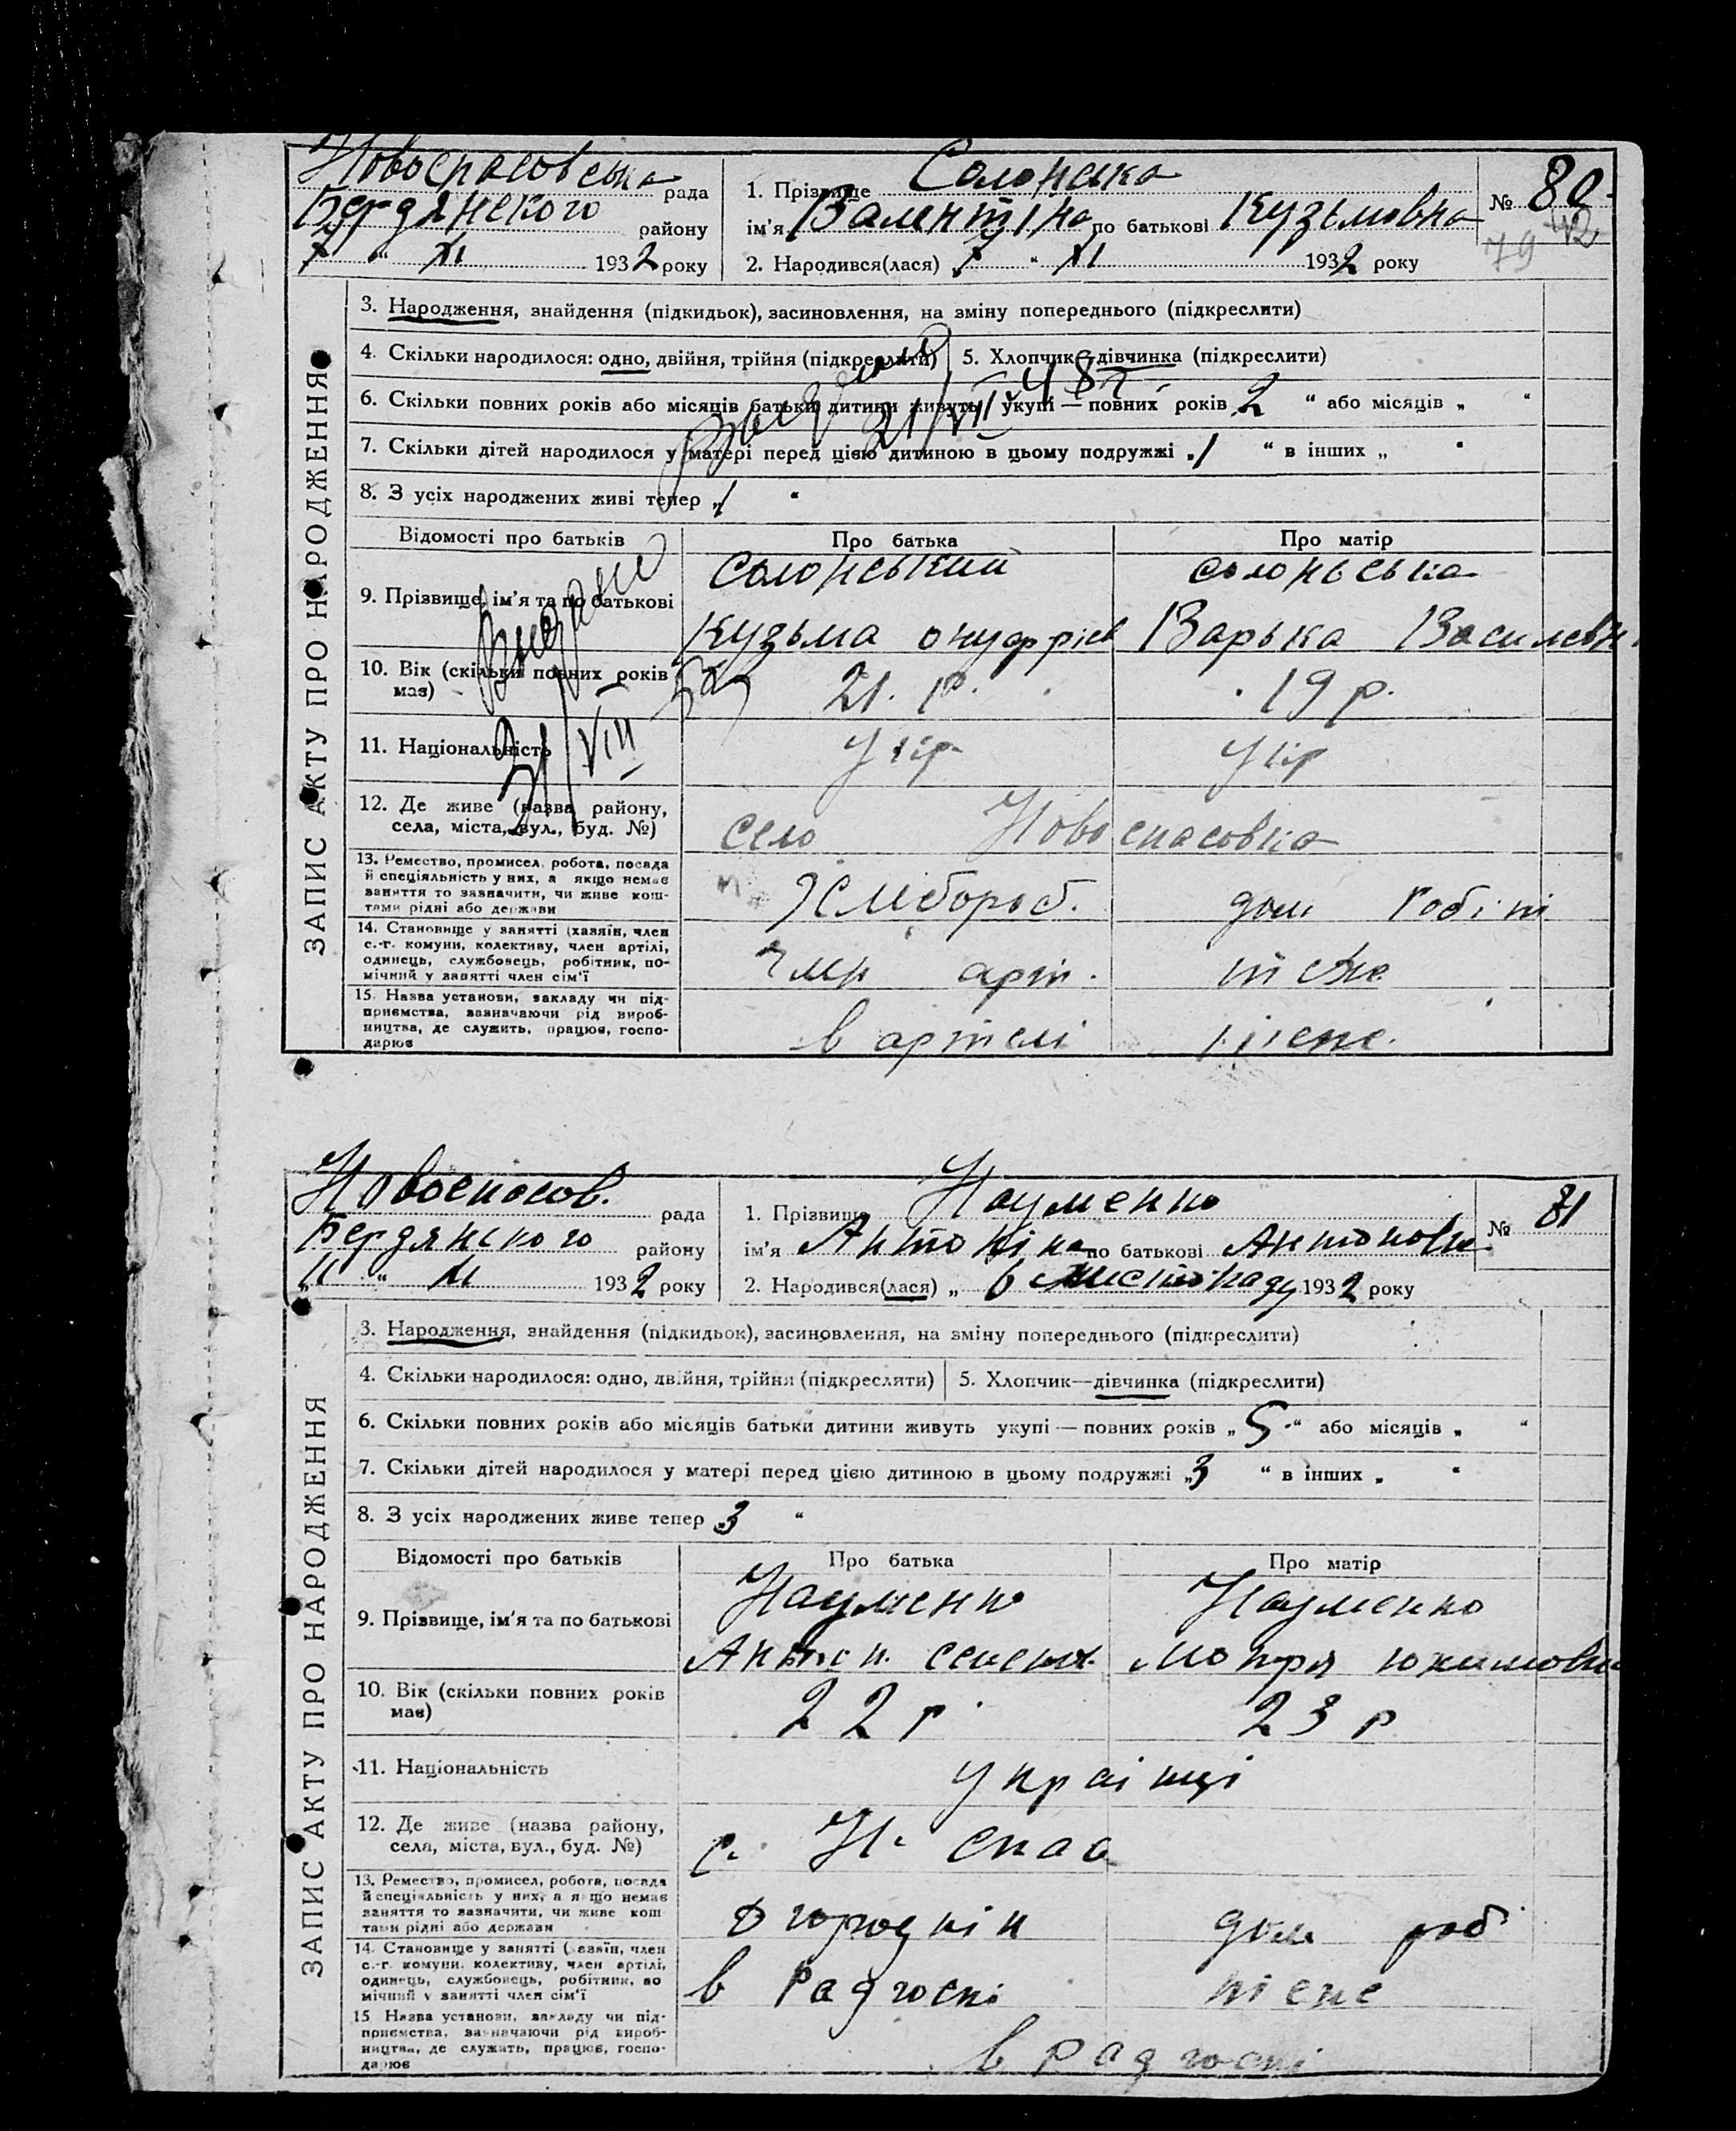 Новоспасовська рада
Бердянского району
7 “ XI 1932 року
1. Прізвище Солонська
ім'я Валентіна по батькові Кузьмовна
2. Народився(лася) „7 “ XI 1932 року
№ 80
42
79
ЗАПИС АКТУ ПРО НАРОДЖЕННЯ
3. Народження, знайдення (підкидьок), засиновлення, на зміну попереднього (підкреслити)
4. Скільки народилося: одно, двійня, трійня (підкреслити) 5. Хлопчик—дівчинка (підкреслити)
6. Скільки повних років або місяців батьки дитини живуть укупі — повних років 2 “ або місяців „ “
7. Скільки дітей народилося у матері перед цією дитиною в цьому подружжі „1 “ в інших „ “
8. З усіх народжених живі тепер „1 “
21/VII 48
Відомості про батьків Про батька Про матір
9. Прізвище, ім'я та по батькові
Солонський Солоньська
Кузьма онуфрієв Варька Василевн.
10. Вік (скільки повних років має) 21. р. 19 р.
21/VIII
11. Національність Укр Укр
12. Де живе (назва району, села, міста, вул., буд. №) село Новоспасовка
13. Ремество, промисел, робота, посада
й спеціяльність у них, а якщо немає
заняття то зазначити, чи живе кош-
тами рідні або держави
Хлібороб. дом робіт
14. Становище у занятті (хазяїн, член
с.-г. комуни, колективу, член артілі,
одинець, службовець, робітник, по-
мічний у занятті член сім'ї
член арт.
15. Назва установи, закладу чи під-
приємства, зазначаючи рід вироб-
ництва, де служить, працює, госпо-
дарює
в артелі
Новоспасов. рада
Бердянского району
„11 “ XI 1932 року
1. Прізвище Науменко
ім'я Антоніна по батькові Антоновна
2. Народився(лася) „ 6 листопаду 1932 року
№ 81
ЗАПИС АКТУ ПРО НАРОДЖЕННЯ
3. Народження, знайдення (підкидьок), засиновлення, на зміну попереднього (підкреслити)
4. Скільки народилося: одно, двійня, трійня (підкреслити) 5. Хлопчик—дівчинка (підкреслити)
6. Скільки повних років або місяців батьки дитини живуть укупі — повних років „5“ або місяців „ “
7. Скільки дітей народилося у матері перед цією дитиною в цьому подружжі „3 “ в інших „ “
8. З усіх народжених живе тепер 3 “
Відомості про батьків Про батька Про матір
9. Прізвище, ім'я та по батькові
Науменко Науменко
Антон. Мокря юхимовна
10. Вік (скільки повних років має) 22 р 23 р
11. Національність украінці
12. Де живе (назва району, села, міста, вул., буд. №) с. Н. спас
13. Ремество, промисел, робота, посада
й спеціяльність у них, а якщо немає
заняття то зазначити, чи живе кош-
тами рідні або держави
огороднік дом роб
14. Становище у занятті (хазяїн, член
с.-г. комуни, колективу, член артілі,
одинець, службовець, робітник, по-
мічний у занятті член сім'ї
в Радгоспі
15 Назва установи, закладу чи під-
приємства, зазначаючи рід вироб-
ництва, де служить, працює, госпо-
дарює
в радгоспі